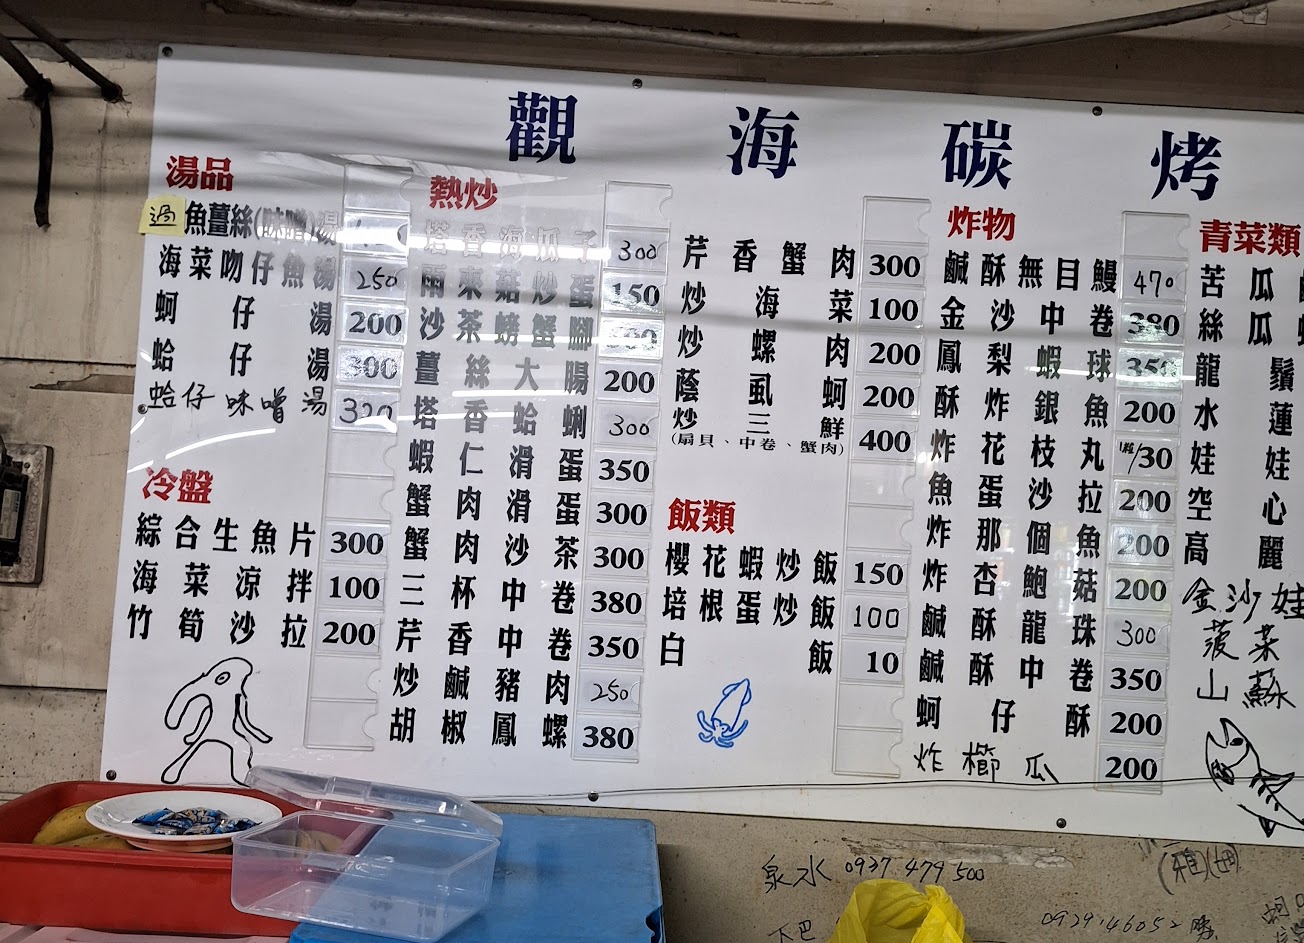 觀海碳烤
湯品
過魚薑絲(味噌)湯
海菜吻仔魚湯 250
蚵仔湯 200
蛤仔湯 300
蛤仔味噌湯 320
冷盤
綜合生魚片 300
海菜涼拌 100
竹筍沙拉 200
熱炒
塔香海瓜子 300
雨來菇炒蛋 150
沙茶螃蟹腳
薑絲大腸 200
塔香蛤蜊 300
蝦仁滑蛋 350
蟹肉滑蛋 300
蟹肉沙茶 300
三杯中卷 380
芹香中卷 350
炒鹹豬肉 250
胡椒鳳螺 380
芹香蟹肉 300
炒海菜 100
炒螺肉 200
蔭虱蚵 200
炒三鮮 400
(扇貝、中卷、蟹肉)
飯類
櫻花蝦炒飯 150
培根蛋炒飯 100
白飯 10
炸物
鹹酥無目鰻 470
金沙中卷 380
鳳梨蝦球 350
酥炸銀魚 200
炸花枝丸 1粒/30
魚蛋沙拉 200
炸那個魚 200
炸杏鮑菇 200
鹹酥龍珠 300
鹹酥中卷 350
蚵仔酥 200
炸櫛瓜 200
青菜類
苦瓜
絲瓜
龍鬚
水蓮
娃娃
空心
高麗
金沙娃
菠菜
山蘇
泉水 0937 479 500
下巴
0929146052